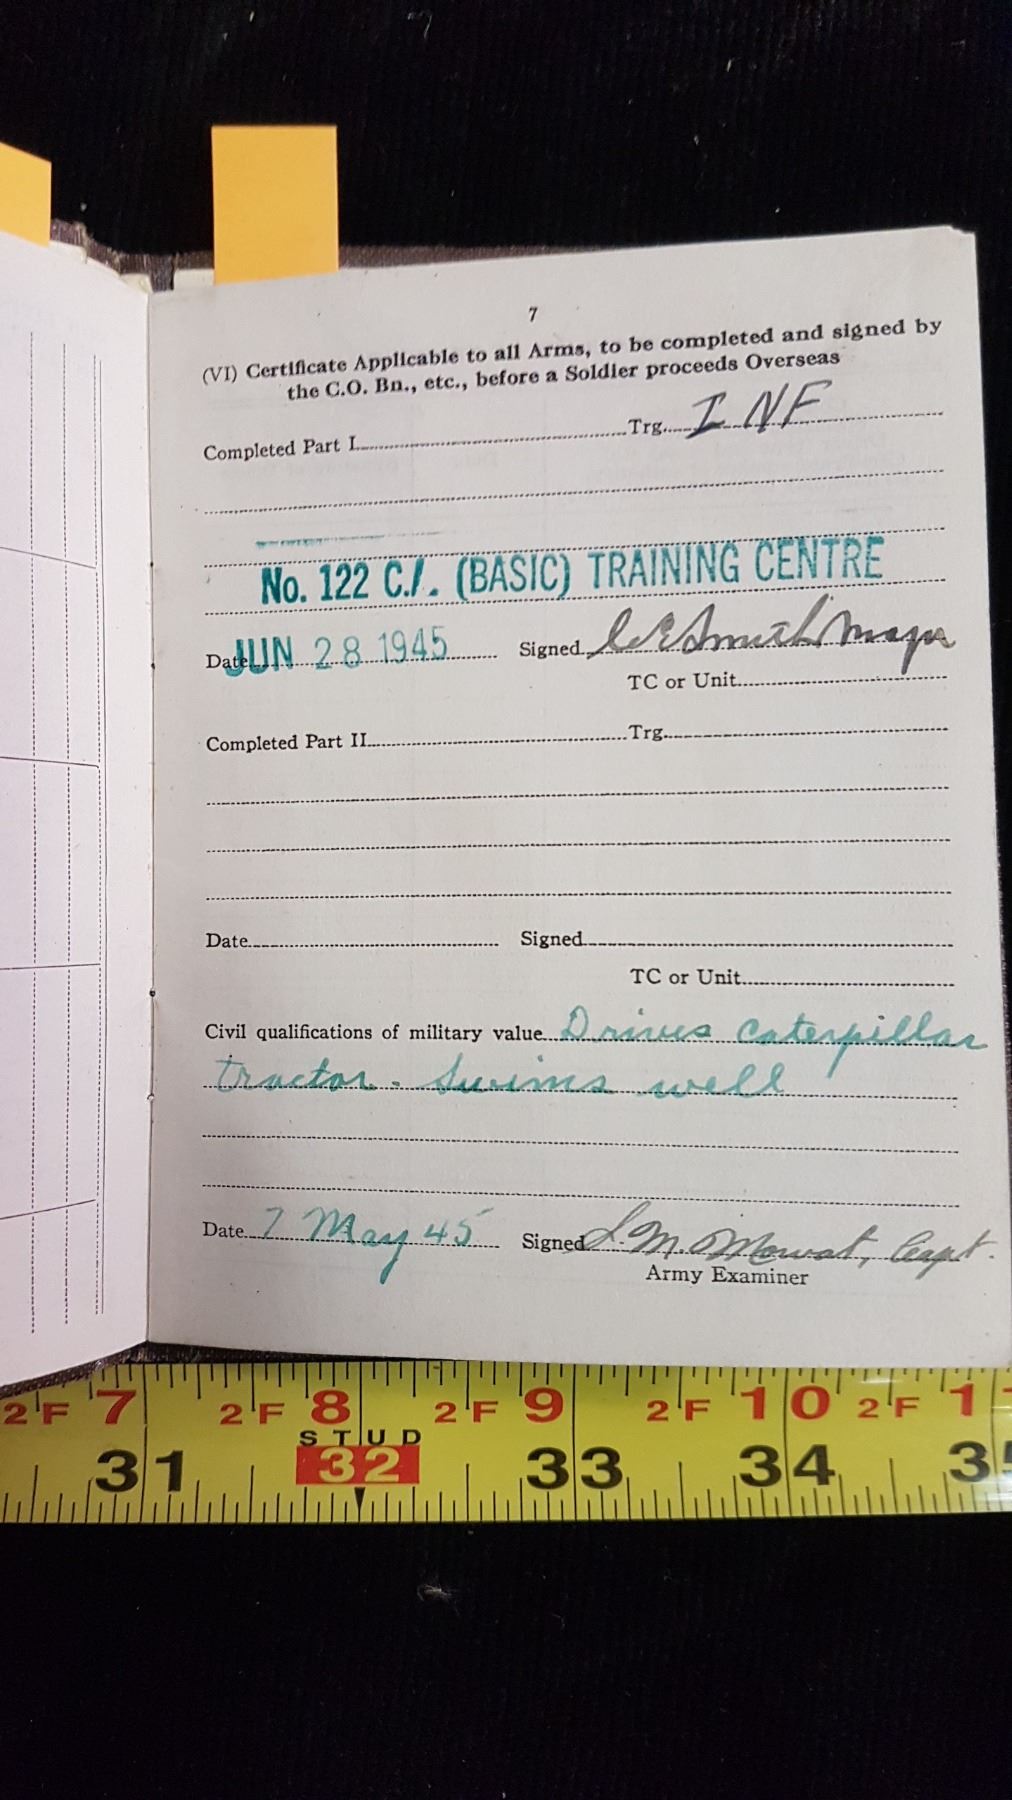 7
(VI) Certificate Applicable to all Arms, to be completed and signed by
the C.O. Bn., etc., before a Soldier proceeds Overseas
Completed Part I. Trg. INF
No. 122 C.I. (BASIC) TRAINING CENTRE
Date JUN 28 1945 Signed Smith Major
TC or Unit
Completed Part II. Trg.
Date Signed
TC or Unit
Civil qualifications of military value Drives caterpillar
tractor. Swims well
Date 7 May 45 Signed M. Mowat, Capt.
Army Examiner
2'F 7 2'F 8 2'F 9 2'F 10 2'F 1
STUD
31 32 33 34 35